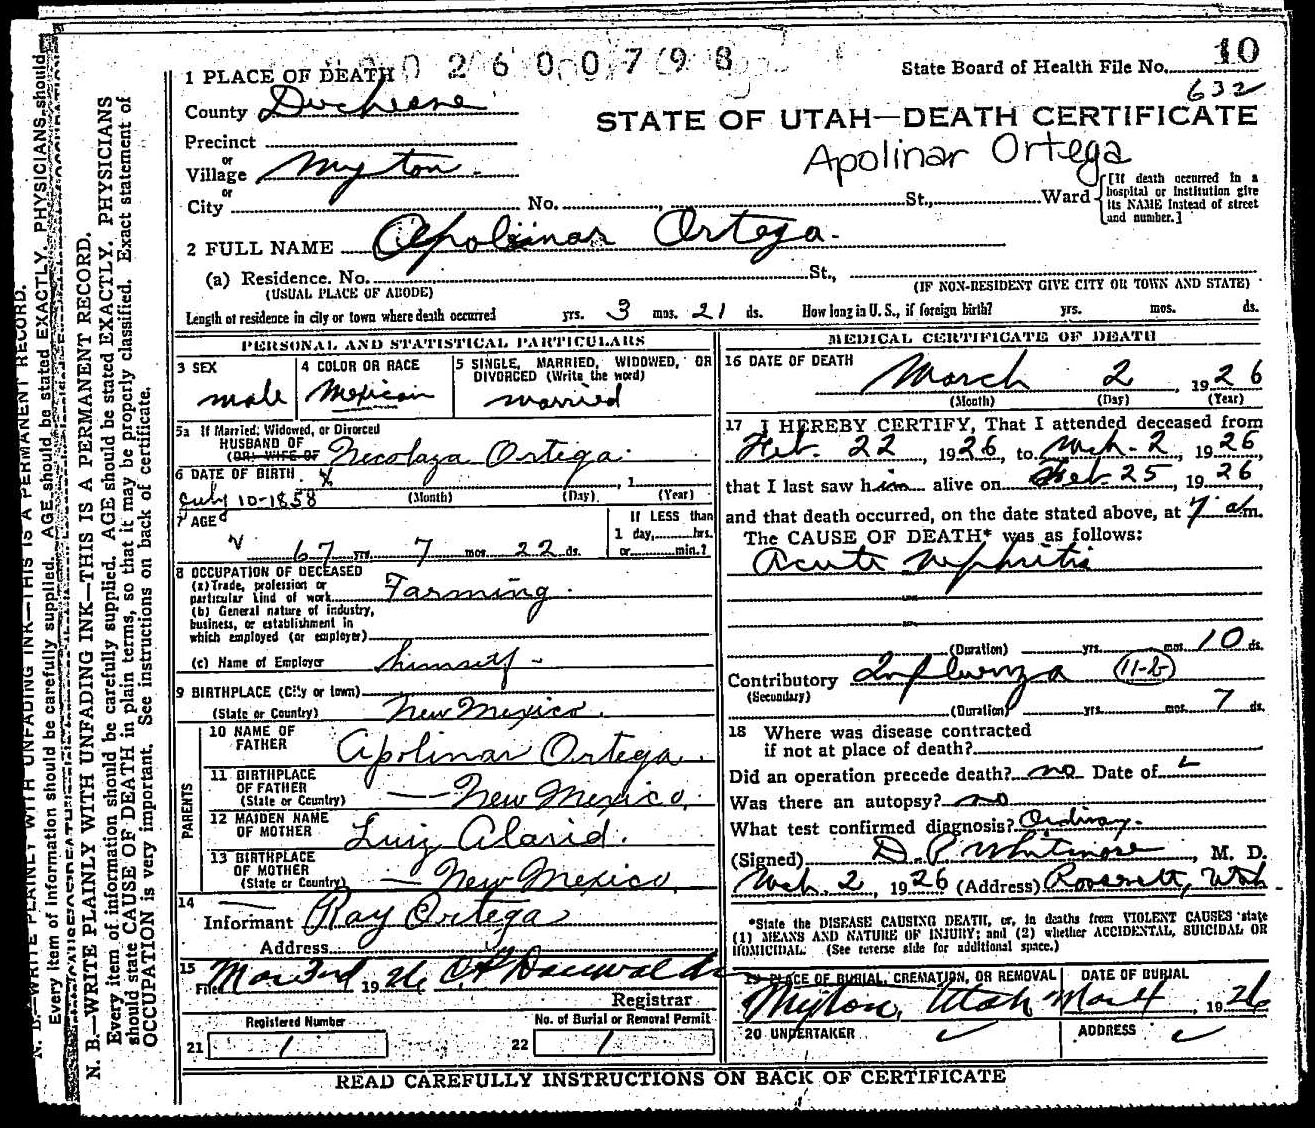 0 2 6 0 0 7 9 8
1 PLACE OF DEATH
State Board of Health File No. 10
632
County Duchesne
STATE OF UTAH—DEATH CERTIFICATE
Precinct
Apolinar Ortega
or
Village Myton
or
City No. , St., Ward
[If death occurred in a hospital or institution give its NAME instead of street and number.]
2 FULL NAME Apolinar Ortega.
(a) Residence. No. St.,
(USUAL PLACE OF ABODE) (IF NON-RESIDENT GIVE CITY OR TOWN AND STATE)
Length of residence in city or town where death occurred yrs. 3 mos. 21 ds. How long in U. S., if foreign birth? yrs. mos. ds.
PERSONAL AND STATISTICAL PARTICULARS
3 SEX
male
4 COLOR OR RACE
Mexican
5 SINGLE, MARRIED, WIDOWED, OR DIVORCED (Write the word)
married
5a If Married, Widowed, or Divorced
HUSBAND OF
(OR) WIFE OF Necolaza Ortega.
6 DATE OF BIRTH , 1
July 10-1858 (Month) (Day) (Year)
7 AGE
67 yrs. 7 mos. 22 ds.
If LESS than
1 day, hrs.
or min.?
8 OCCUPATION OF DECEASED
(a) Trade, profession or
particular kind of work Farming.
(b) General nature of industry,
business, or establishment in
which employed (or employer)
(c) Name of Employer himself -
9 BIRTHPLACE (City or town)
(State or Country) New Mexico.
PARENTS
10 NAME OF
FATHER Apolinar Ortega.
11 BIRTHPLACE
OF FATHER
(State or Country) — New Mexico.
12 MAIDEN NAME
OF MOTHER Luiz Alarid.
13 BIRTHPLACE
OF MOTHER
(State or Country) — New Mexico.
14
Informant Ray Ortega
Address
15
File Mar 3rd 19 26
Registrar
Registered Number
21 1
No. of Burial or Removal Permit
22 1
MEDICAL CERTIFICATE OF DEATH
16 DATE OF DEATH
March 2, 1926
(Month) (Day) (Year)
17 I HEREBY CERTIFY, That I attended deceased from
Feb. 22, 1926, to Mch. 2, 1926,
that I last saw him alive on Feb 25, 1926,
and that death occurred, on the date stated above, at 7 a.m.
The CAUSE OF DEATH* was as follows:
Acute Nephritis
(Duration) yrs. mos. 10 ds.
Contributory Influenza 11-b
(Secondary)
(Duration) yrs. mos. 7 ds.
18 Where was disease contracted
if not at place of death?
Did an operation precede death? no Date of
Was there an autopsy? no
What test confirmed diagnosis? Ordinary.
(Signed) D. P. Whitmore, M. D.
Mch. 2, 1926 (Address) Roosevelt, Utah
*State the DISEASE CAUSING DEATH, or, in deaths from VIOLENT CAUSES state
(1) MEANS AND NATURE OF INJURY; and (2) whether ACCIDENTAL, SUICIDAL OR
HOMICIDAL. (See reverse side for additional space.)
19 PLACE OF BURIAL, CREMATION, OR REMOVAL
Myton, Utah
DATE OF BURIAL
Mar 4 1926
20 UNDERTAKER
ADDRESS
READ CAREFULLY INSTRUCTIONS ON BACK OF CERTIFICATE
N. B.—WRITE PLAINLY WITH UNFADING INK—THIS IS A PERMANENT RECORD.
Every item of information should be carefully supplied. AGE should be stated EXACTLY. PHYSICIANS
should state CAUSE OF DEATH in plain terms, so that it may be properly classified. Exact statement of
OCCUPATION is very important. See instructions on back of certificate.
N. B.—WRITE PLAINLY WITH UNFADING INK—THIS IS A PERMANENT RECORD.
Every item of information should be carefully supplied. AGE should be stated EXACTLY. PHYSICIANS should